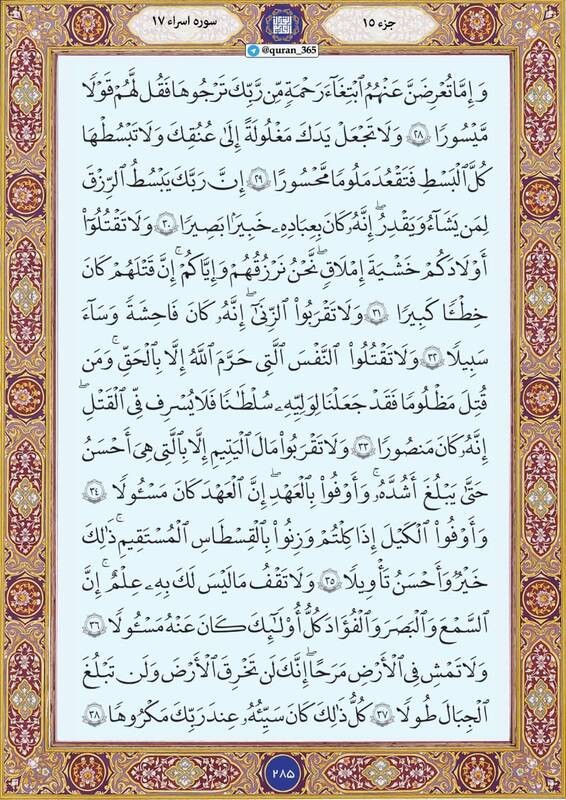 جزء ۱۵
سوره اسراء ۱۷
@quran_365
وَإِمَّا تُعْرِضَنَّ عَنْهُمُ ٱبْتِغَآءَ رَحْمَةٍ مِّن رَّبِّكَ تَرْجُوهَا فَقُل لَّهُمْ قَوْلًا
مَّيْسُورًا ۲۸ وَلَا تَجْعَلْ يَدَكَ مَغْلُولَةً إِلَىٰ عُنُقِكَ وَلَا تَبْسُطْهَا
كُلَّ ٱلْبَسْطِ فَتَقْعُدَ مَلُومًا مَّحْسُورًا ۲۹ إِنَّ رَبَّكَ يَبْسُطُ ٱلرِّزْقَ
لِمَن يَشَآءُ وَيَقْدِرُ ۚ إِنَّهُۥ كَانَ بِعِبَادِهِۦ خَبِيرًۢا بَصِيرًا ۳۰ وَلَا تَقْتُلُوٓا۟
أَوْلَٰدَكُمْ خَشْيَةَ إِمْلَٰقٍ ۖ نَّحْنُ نَرْزُقُهُمْ وَإِيَّاكُمْ ۚ إِنَّ قَتْلَهُمْ كَانَ
خِطْـًٔا كَبِيرًا ۳۱ وَلَا تَقْرَبُوا۟ ٱلزِّنَىٰٓ ۖ إِنَّهُۥ كَانَ فَٰحِشَةً وَسَآءَ
سَبِيلًا ۳۲ وَلَا تَقْتُلُوا۟ ٱلنَّفْسَ ٱلَّتِى حَرَّمَ ٱللَّهُ إِلَّا بِٱلْحَقِّ ۗ وَمَن
قُتِلَ مَظْلُومًا فَقَدْ جَعَلْنَا لِوَلِيِّهِۦ سُلْطَٰنًا فَلَا يُسْرِف فِّى ٱلْقَتْلِ ۖ
إِنَّهُۥ كَانَ مَنصُورًا ۳۳ وَلَا تَقْرَبُوا۟ مَالَ ٱلْيَتِيمِ إِلَّا بِٱلَّتِى هِىَ أَحْسَنُ
حَتَّىٰ يَبْلُغَ أَشُدَّهُۥ ۚ وَأَوْفُوا۟ بِٱلْعَهْدِ ۖ إِنَّ ٱلْعَهْدَ كَانَ مَسْـُٔولًا ۳۴
وَأَوْفُوا۟ ٱلْكَيْلَ إِذَا كِلْتُمْ وَزِنُوا۟ بِٱلْقِسْطَاسِ ٱلْمُسْتَقِيمِ ۚ ذَٰلِكَ
خَيْرٌ وَأَحْسَنُ تَأْوِيلًا ۳۵ وَلَا تَقْفُ مَا لَيْسَ لَكَ بِهِۦ عِلْمٌ ۚ إِنَّ
ٱلسَّمْعَ وَٱلْبَصَرَ وَٱلْفُؤَادَ كُلُّ أُو۟لَٰٓئِكَ كَانَ عَنْهُ مَسْـُٔولًا ۳۶
وَلَا تَمْشِ فِى ٱلْأَرْضِ مَرَحًا ۖ إِنَّكَ لَن تَخْرِقَ ٱلْأَرْضَ وَلَن تَبْلُغَ
ٱلْجِبَالَ طُولًا ۳۷ كُلُّ ذَٰلِكَ كَانَ سَيِّئُهُۥ عِندَ رَبِّكَ مَكْرُوهًا ۳۸
۲۸۵